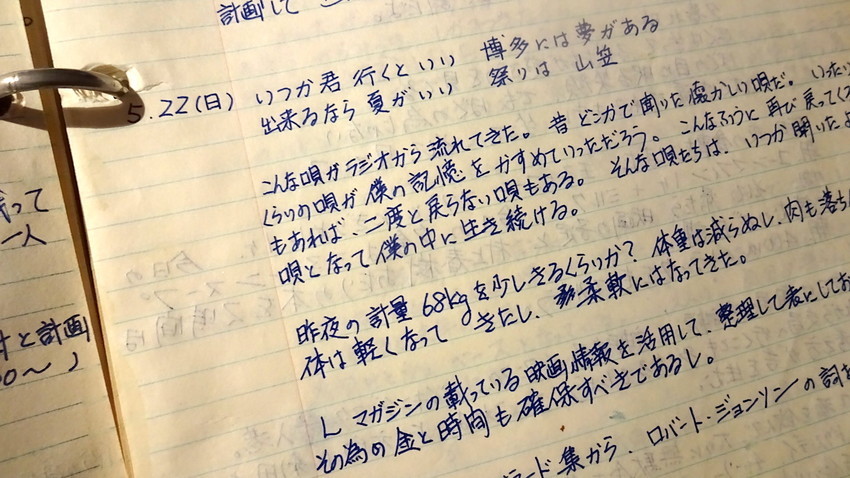 計画して
5.22(日) いつか君 行くといい 博多には夢がある
出来るなら 夏がいい 祭りは 山笠
こんな唄がラジオから流れてきた。昔 どこかで聞いた懐かしい唄だ。いったい
くらいの唄が僕の記憶をかすめていっただろう。こんなふうと再び戻ってくる
もあれば、二度と戻らない唄もある。そんな唄たちは、いつか聞いたよ
唄となって僕の中に生き続ける。
昨夜の計量 68kgを少しきるくらいか? 体重は減らぬし、肉も落ち
体は軽くなってきたし、柔軟にはなってきた。
L マガジンの載っている映画情報を活用して、整理して表にしてお
その為の金と時間も確保すべきであるし。
集から、ロバート・ジョンソンの詞を
って
一人
と計画